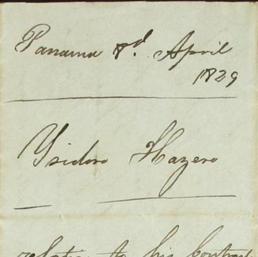 Panama 8.d April
1829
Ysidoro Hazero
relative to his Contract